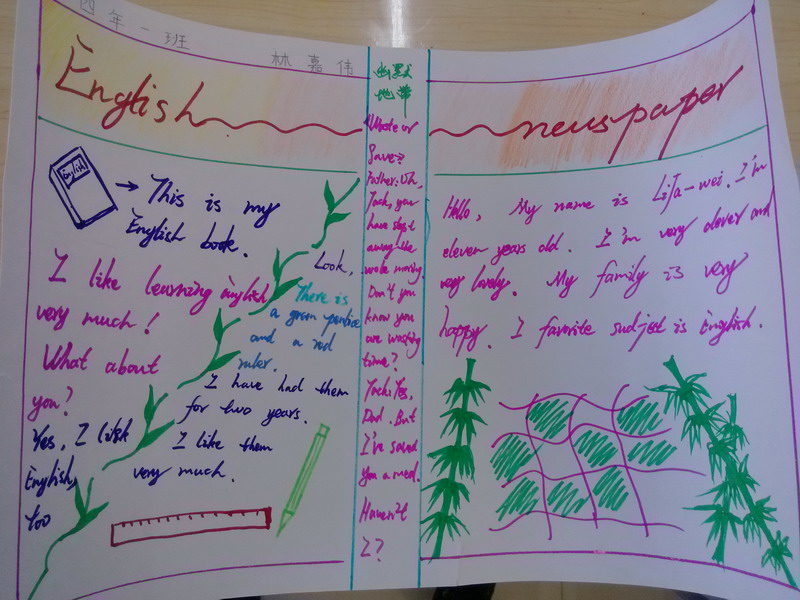 四年一班
林嘉伟
English newspaper
English
This is my
English book.
I like learning English
very much!
What about
you?
Yes, I like
English,
too
Look,
There is
a green pencile
and a red
ruler.
I have had them
for two years.
I like them
very much.
幽默
地带
Waste or
Save?
Father: Oh,
Jack, you
have slept
away the
whole morning.
Don't you
know you
are wasting
time?
Jack: Yes,
Dad. But
I've saved
you a meal.
Haven't
I?
Hello, My name is LiJa-wei. I'm
eleven years old. I'm very clever and
very lovely. My family is very
happy. I favorite sudject is English.